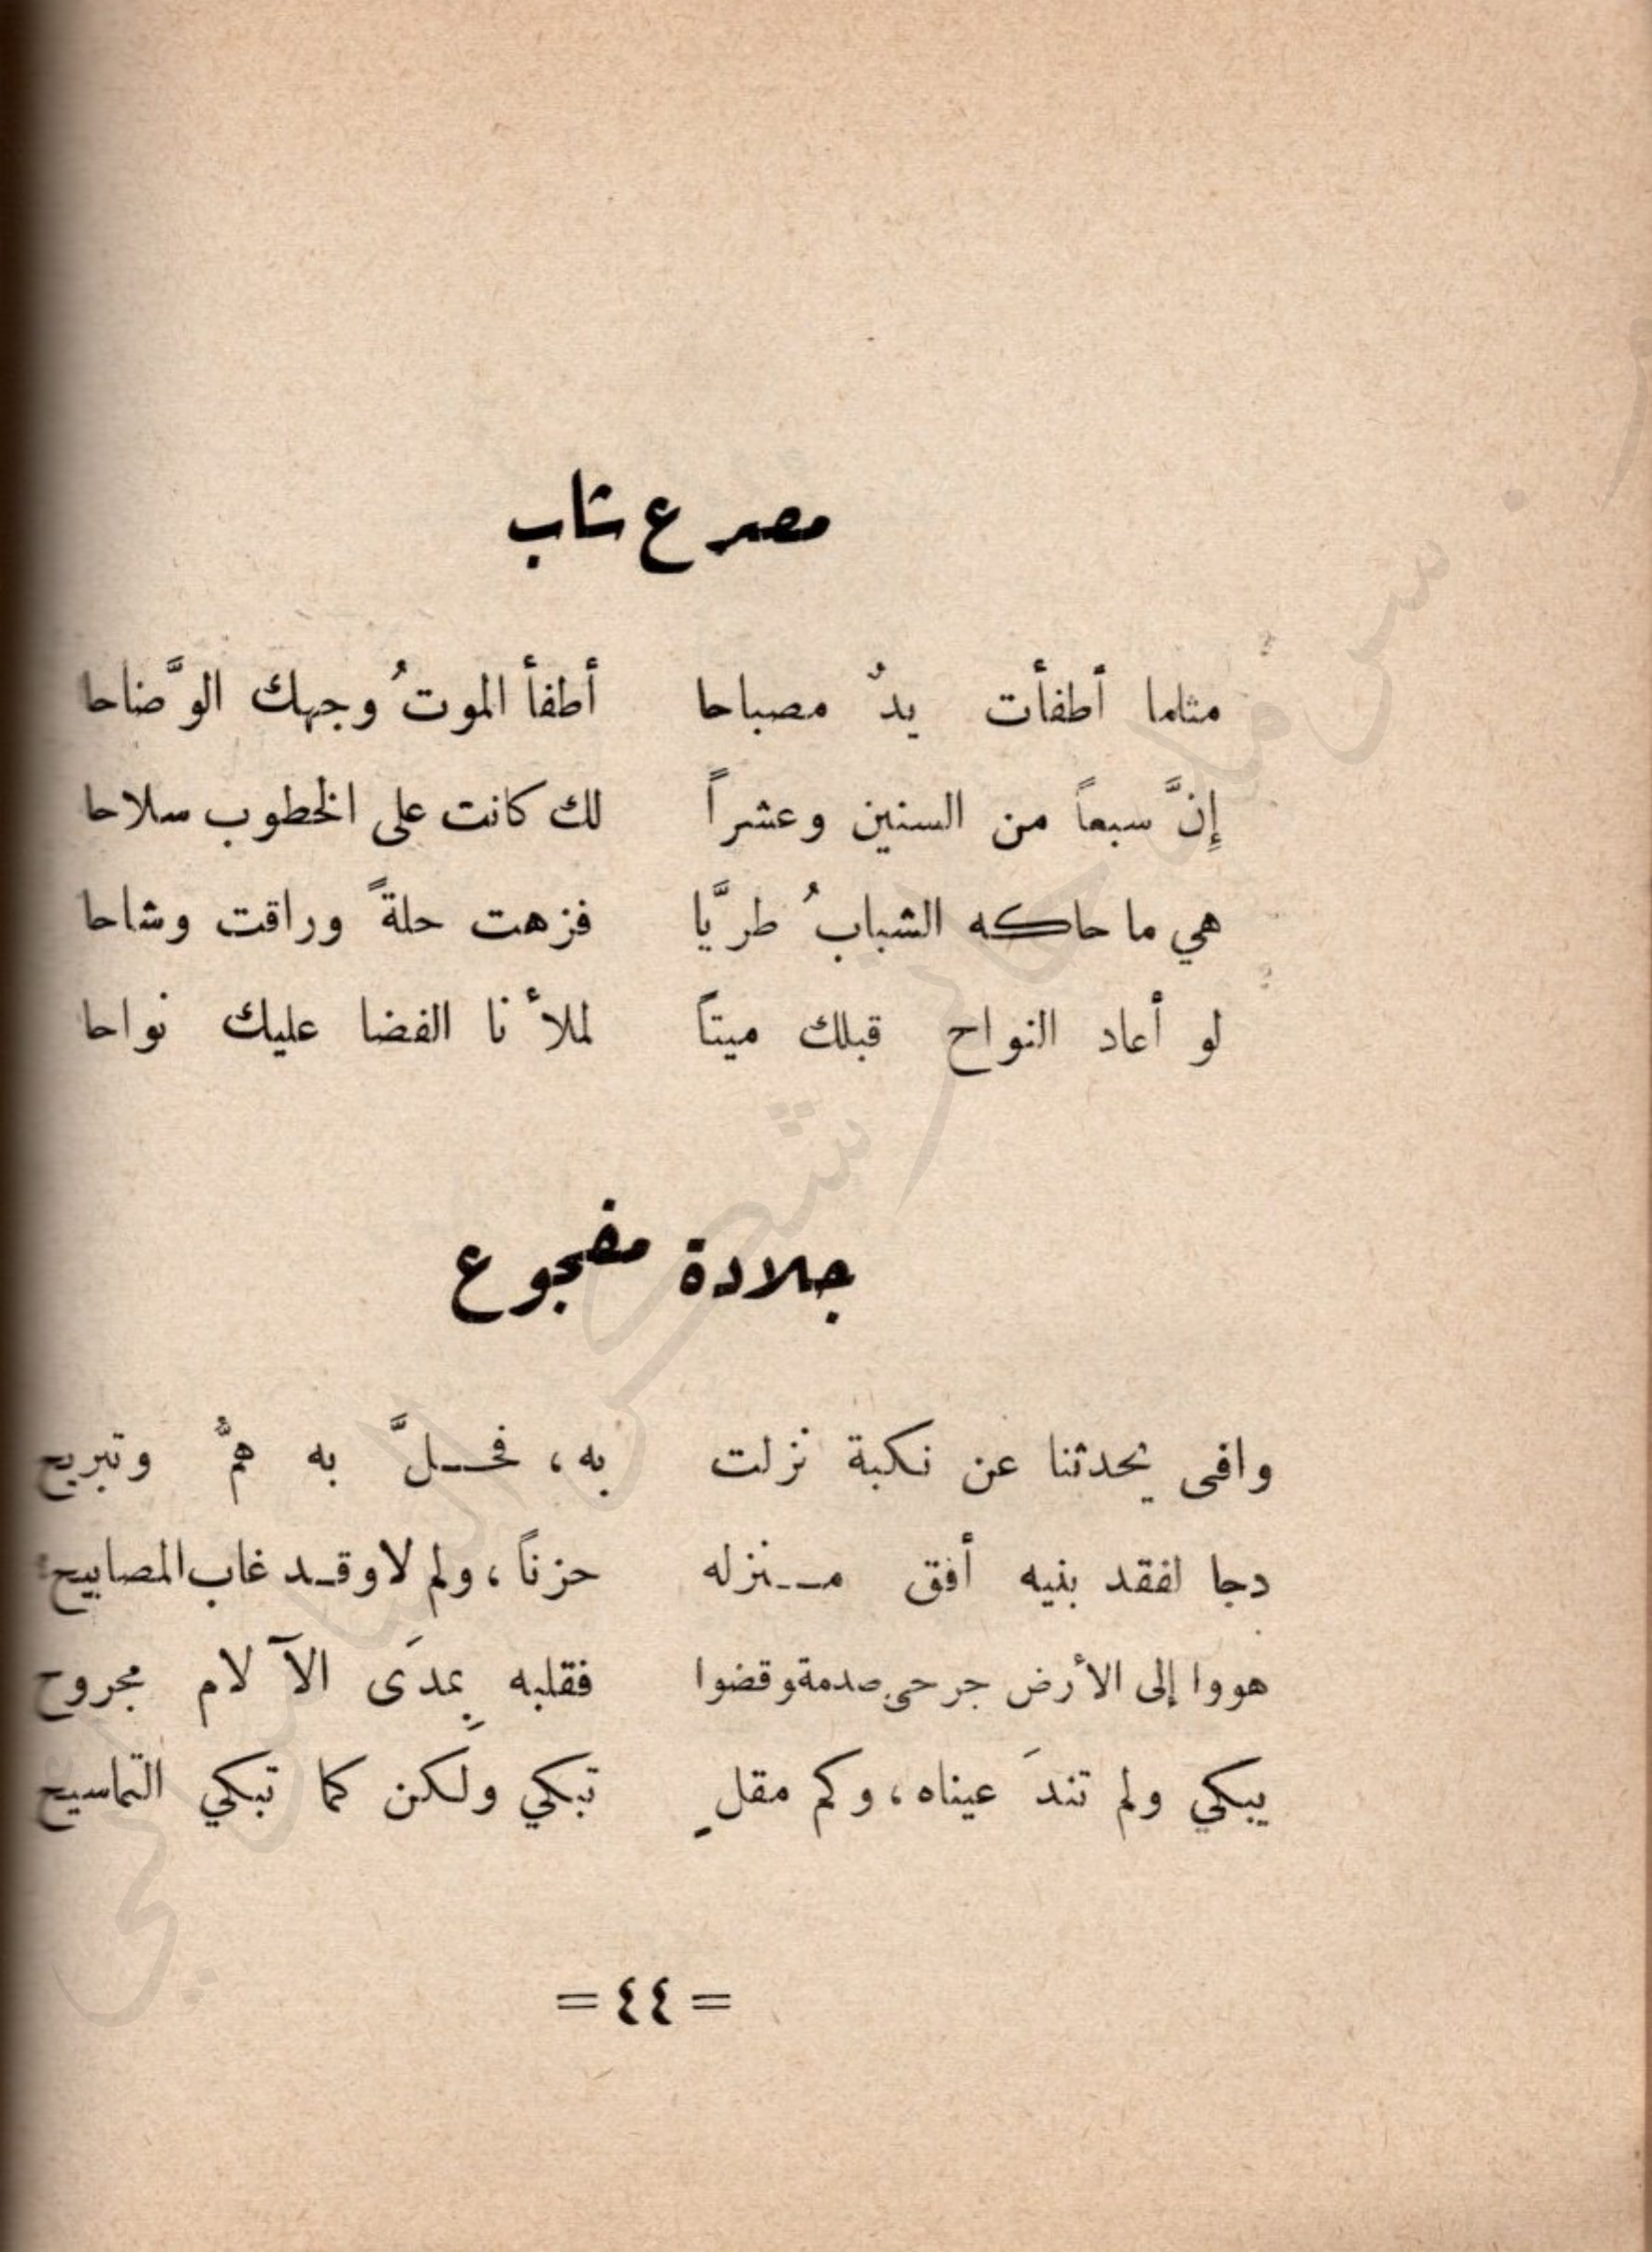 مصرع شاب
مثلما أطفأت يدٌ مصباحا أطفأ الموتُ وجهك الوَّضاحا
إِنَّ سبعاً من السنين وعشراً لك كانت على الخطوب سلاحا
هي ما حاكه الشبابُ طريَّا فزهت حلةً وراقت وشاحا
لو أعاد النواح قبلك ميتاً لملأنا الفضا عليك نواحا
جلادة مفجوع
وافى يحدثنا عن نكبة نزلت به، فحـلَّ به همٌّ وتبريح
دجا لفقد بنيه أفق مـنزله حزناً، ولم لا وقـد غاب المصابيح
هووا إلى الأرض جرحى صدمة وقضوا فقلبه بمدَى الآلام مجروح
يبكي ولم تندَ عيناه، وكم مقلٍ تبكي ولكن كما تبكي التماسيح
= ٤٤ =